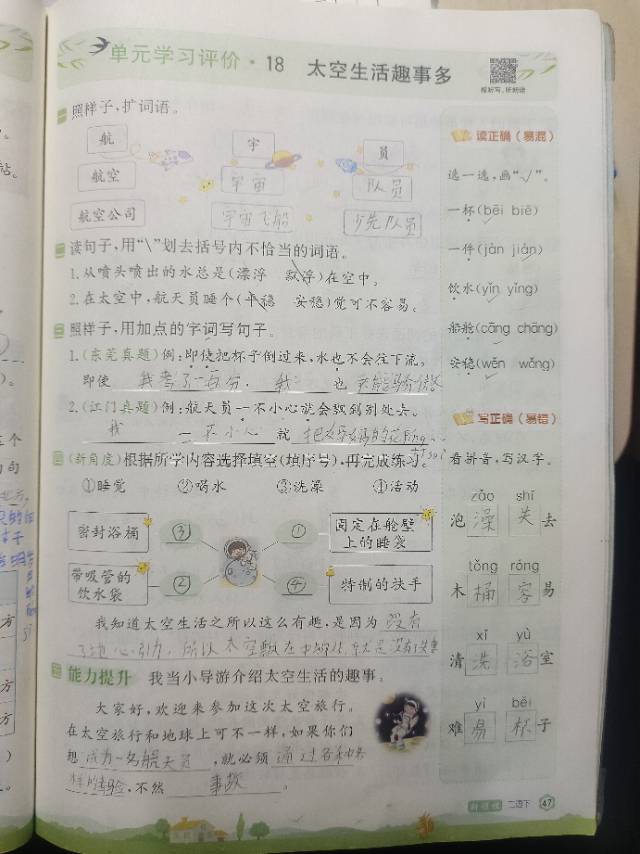 单元学习评价·18 太空生活趣事多
视听写，听朗读
一 照样子，扩词语。
航 宇 员
航空 宇宙 队员
航空公司 宇宙飞船 少先队员
二 读句子，用“\”划去括号内不恰当的词语。
1.从喷头喷出的水总是(漂浮 飘浮)在空中。
2.在太空中，航天员睡个(平稳 安稳)觉可不容易。
三 照样子，用加点的字词写句子。
1.(东莞真题)例：即使把杯子倒过来，水也不会往下流。
即使 我考了一百分，我 也
2.(江门真题)例：航天员一不小心就会飘到别处去。
我 一 不小心 就 把
四 (新角度)根据所学内容选择填空(填序号)，再完成练习。
①睡觉 ②喝水 ③洗澡 ④活动
密封浴桶 ③ ① 固定在舱壁上的睡袋
带吸管的饮水袋 ② ④ 特制的扶手
我知道太空生活之所以这么有趣，是因为 没有
了地心引力，所以太空
五 能力提升 我当小导游介绍太空生活的趣事。
大家好，欢迎来参加这次太空旅行。
在太空旅行和地球上可不一样，如果你们
想 成为一名航天员 ，就必须 通过各种各
样的考验，不然 事故 。
读正确（易混）
选一选，画“√”。
一杯(bēi biē)
一件(jàn jiàn)
饮水(yǐn yǐng)
船舱(cāng chāng)
安稳(wěn wǎng)
写正确（易错）
看拼音，写汉字。
zǎo shī
泡 澡 失 去
tǒng róng
木 桶 容 易
xǐ yù
清 洗 浴 室
yì bēi
难 易 杯 子
二语下 47